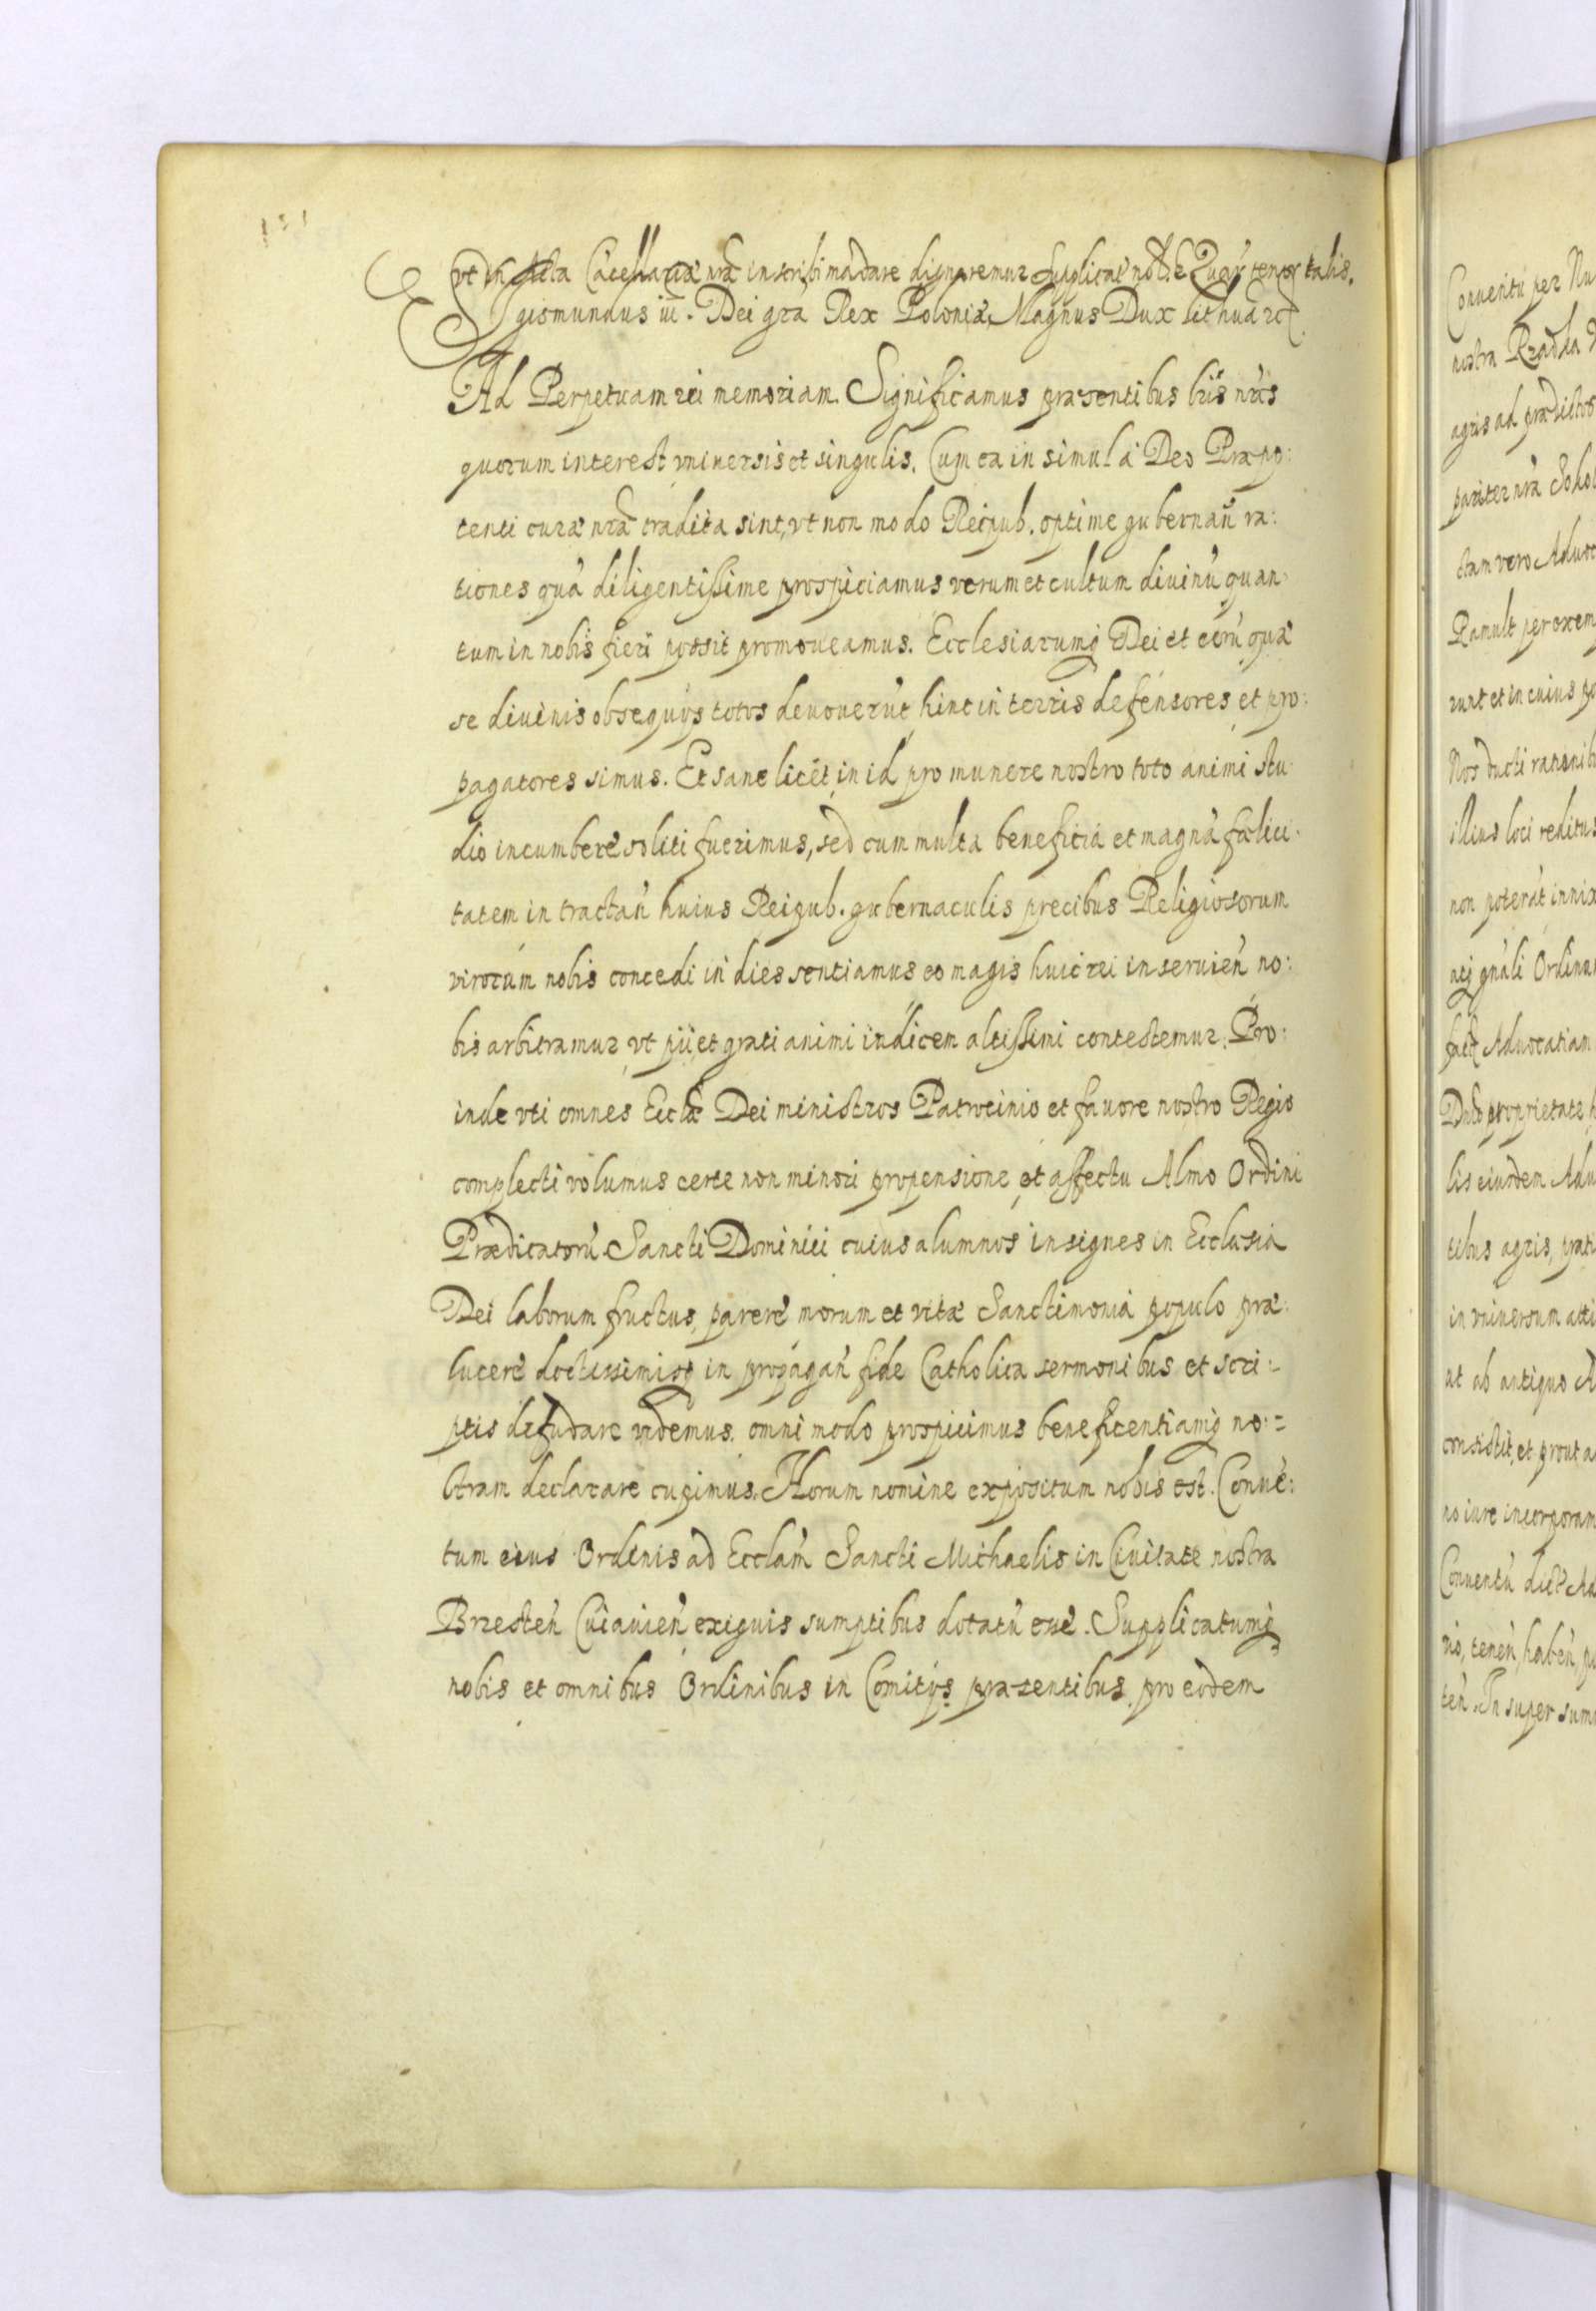 vt in Acta Cācellariæ nrā inscribi mādare dignaremur Suplicāt nobis Quar̄ tenor talis.
Sigismundus iii. Dei grā Rex Poloniæ, Magnus Dux Lithuā
Ad Perpetuam rei memoriam. Significamus præsentibus lris nris
quorum interest vniversis et singulis. Cum ea in simul à Deo Præpo:
tenti curæ nrā tradita sint, vt non modo Reipub. optime gubernan̄ ra:
tiones quā diligentissime prospiciamus verum et cultum divinū quan:
tum in nobis fieri possit promoueamus. Ecclesiarumq Dei et eorū quæ
se diuinis obsequijs totos devoverūt hinc in terris defensores et pro:
pagatores simus. Et sane licet in id pro munere nostro toto animi stu
dio incumbere soliti fuerimus, sed cum multa beneficia et magnā fœlici:
tatem in tractan̄ huius Reipub. gubernaculis precibus Religiosorum
virorum nobis concedi in dies sentiamus eo magis huic rei inservien̄ no:
bis arbitramur vt pij et grati animi indicem altissimi contestemur. Pro:
inde vti omnes Ecclæ Dei ministros Patrocinio et favore nostro Regio
complecti volumus certe non minori propensione et affectu Almo Ordini
Prædicatorū Sancti Dominici cuius alumnos insignes in Ecclesia
Dei laborum fructus, parere morum et vitæ Sanctimonia populo præ:
lucere doctissimisq in propagan̄ fide Catholica sermonibus et scri:
ptis desudare videmus. omni modo prospicimus beneficentiamq no:
stram declarare cupimus. Horum nomine expositum nobis est. Convē:
tum eius Ordinis ad Ecclam̄ Sancti Michaelis in Civitate nostra
Brzesten̄ Cuiavien̄ exiguis sumptibus dotatū esse. Supplicatumq
nobis et omnibus Ordinibus in Comitijs præsentibus pro eodem
Conventu per
nostra
agris ad prædictos
pariter nrā
ctam vero
per exem
runt et in cuius
Nos ducti rationib
illius loci reditus
non poterāt innix
Ordina
Advocatiam
proprietate
lis eiusdem
tibus agris, prati
in vniversum
ut ab antiquo
consistit, et prout a
no iure incorporam
Conventū
tenen̄, haben̄,
ten̄. In super